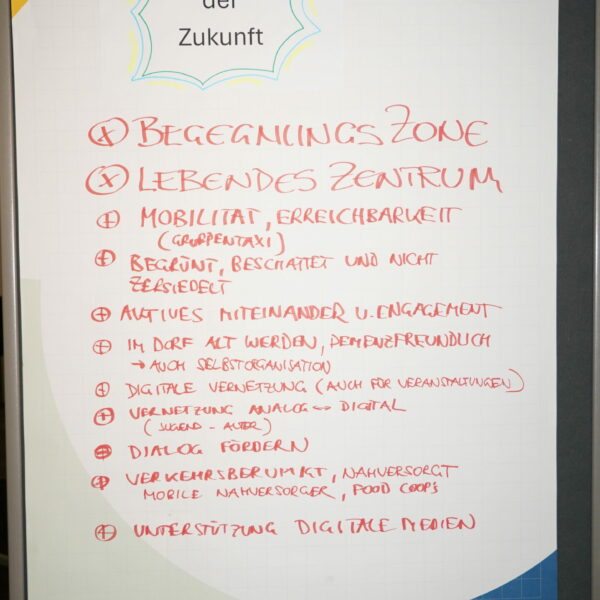 der
Zukunft
⊗ BEGEGNUNGSZONE
⊗ LEBENDES ZENTRUM
⊕ MOBILITÄT, ERREICHBARKEIT
(GRUPPENTAXI)
⊕ BEGRÜNT, BESCHATTET UND NICHT
ZERSIEDELT
⊕ AKTIVES MITEINANDER U. ENGAGEMENT
⊕ IM DORF ALT WERDEN, DEMENZFREUNDLICH
→ AUCH SELBSTORGANISATION
⊕ DIGITALE VERNETZUNG (AUCH FÜR VERANSTALTUNGEN)
⊕ VERNETZUNG ANALOG ↔ DIGITAL
(JUGEND - ALTER)
⊕ DIALOG FÖRDERN
⊕ VERKEHRSBERUHIGT, NAHVERSORGT
MOBILE NAHVERSORGER, FOOD COOP'S
⊕ UNTERSTÜTZUNG DIGITALE MEDIEN